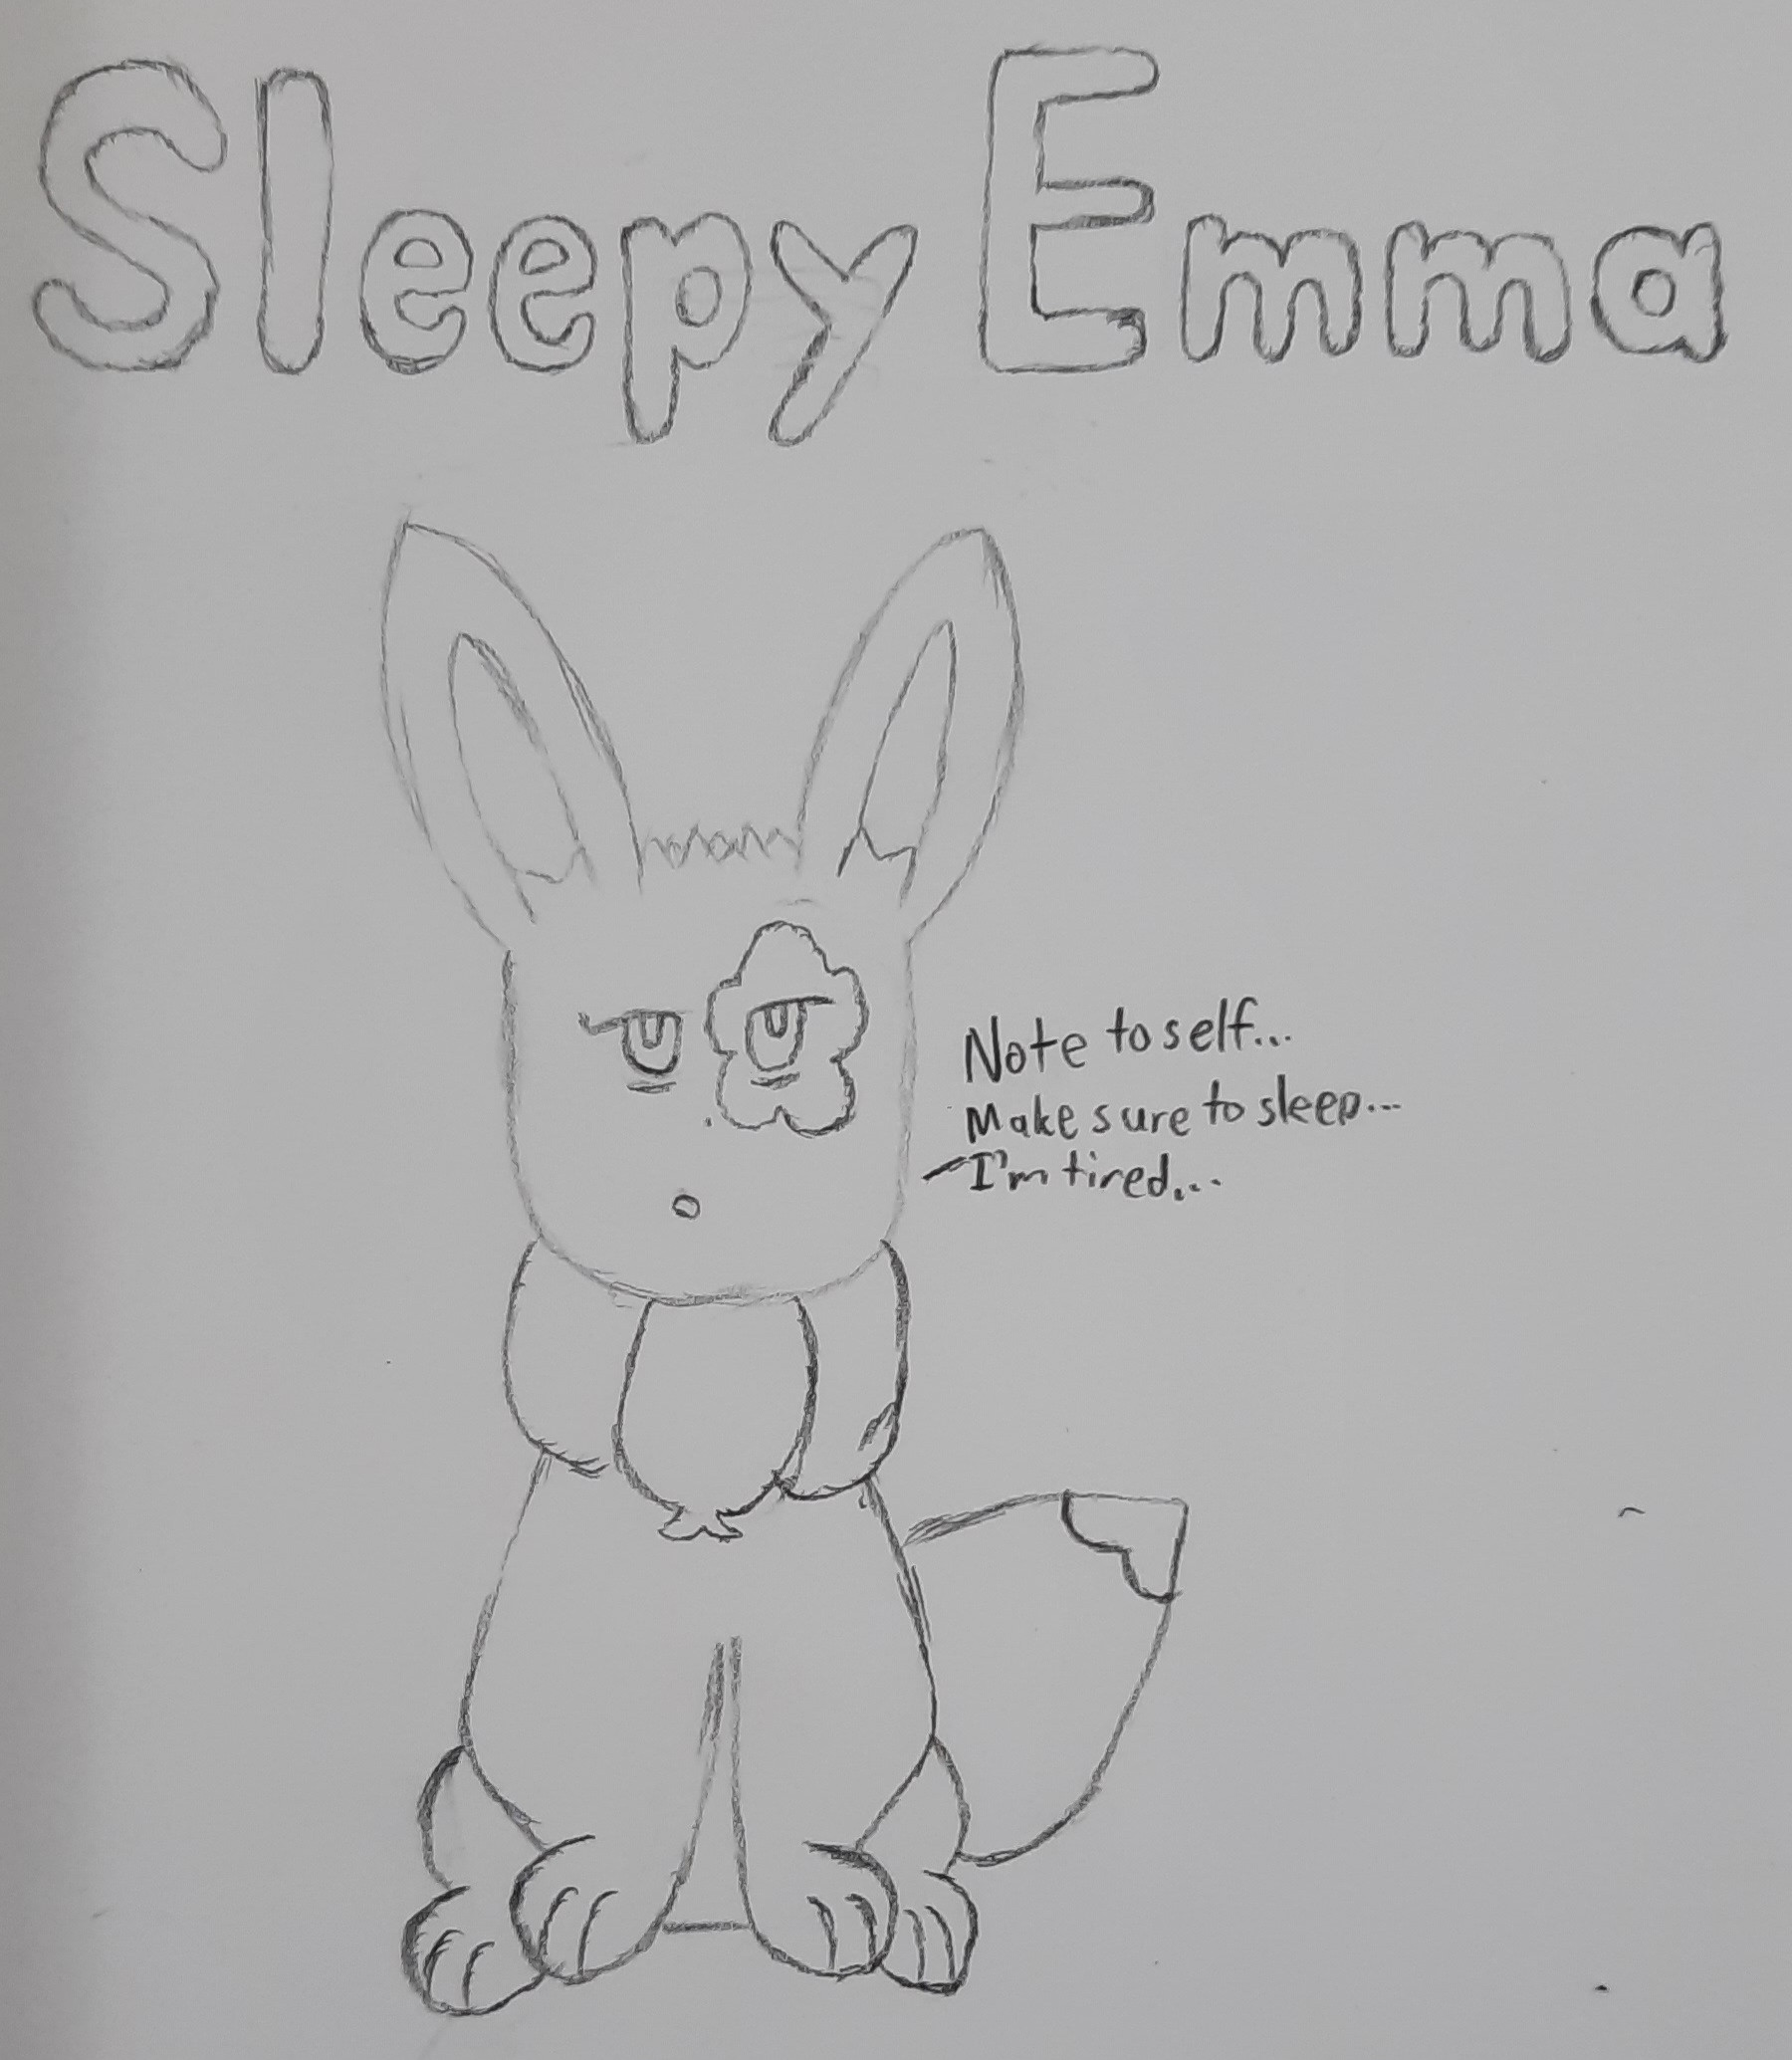 Sleepy Emma
Note to self...
Make sure to sleep...
I'm tired...